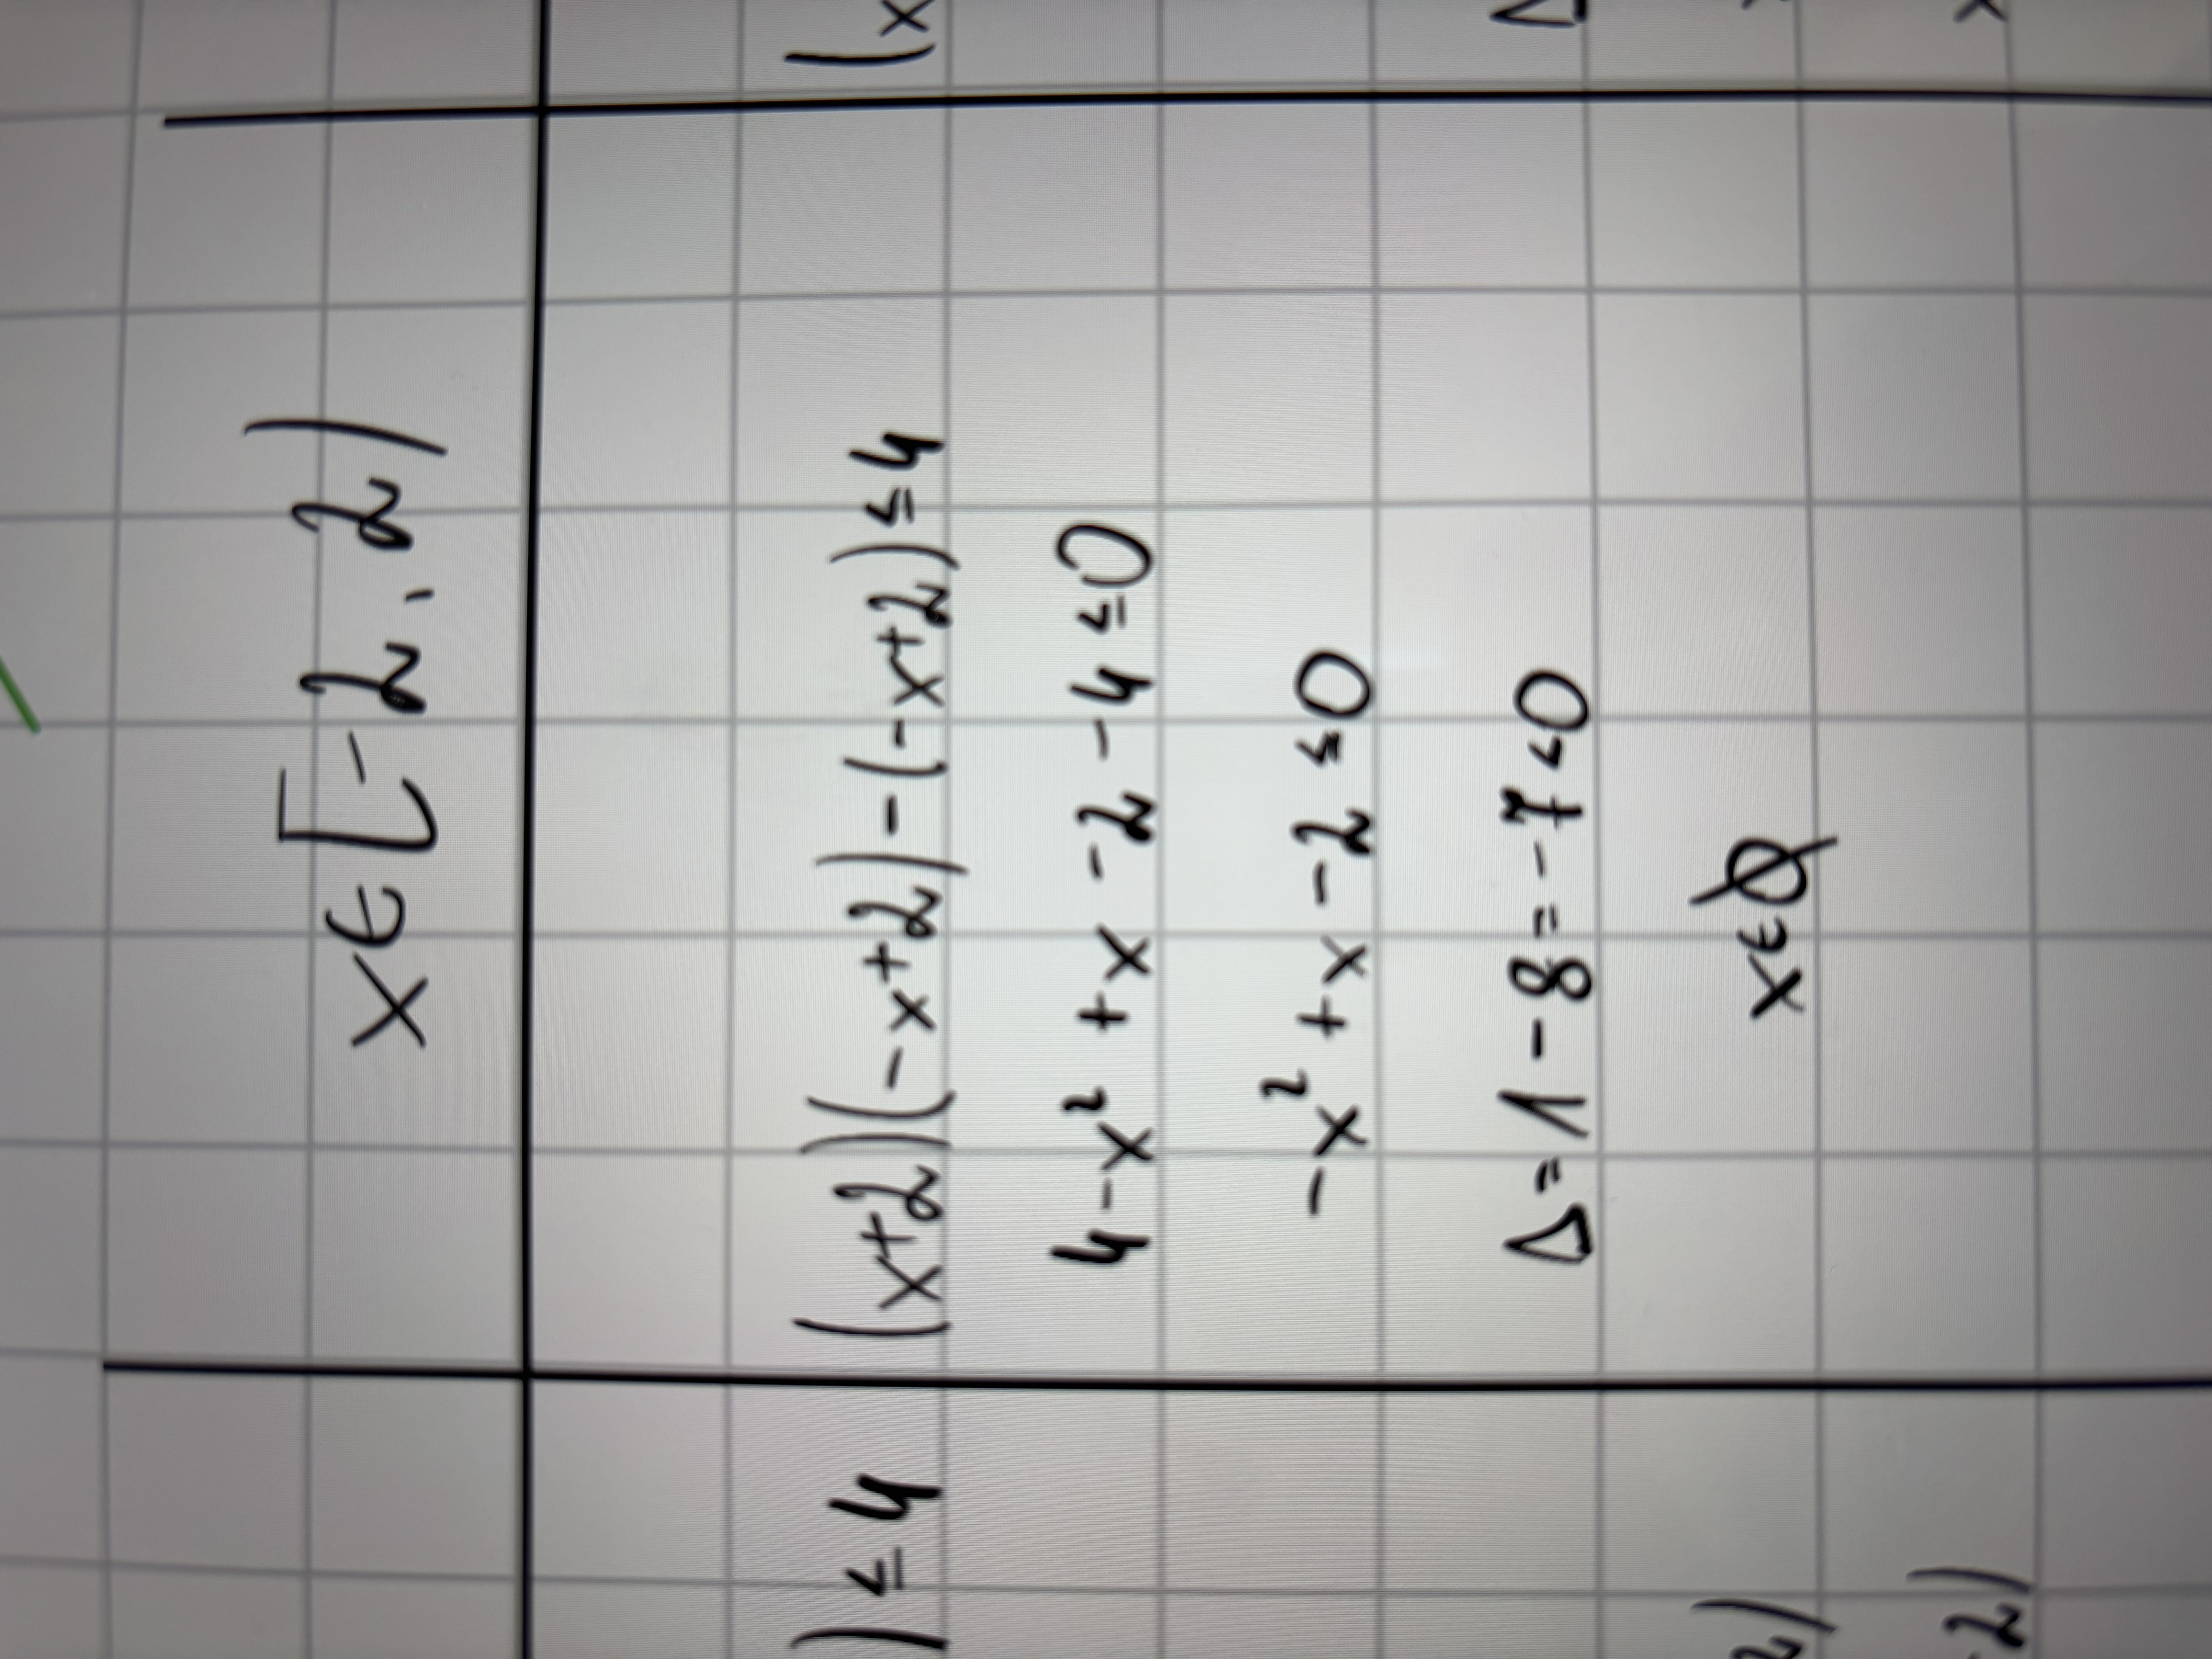 x∈[-2, 2)
) ≤ 4
(x+2)(-x+2)-(-x+2) ≤ 4
(x
4-x²+x-2-4 ≤ 0
-x²+x-2 ≤ 0
Δ=1-8=-7<0
Δ
x∈∅
2)
x
2)